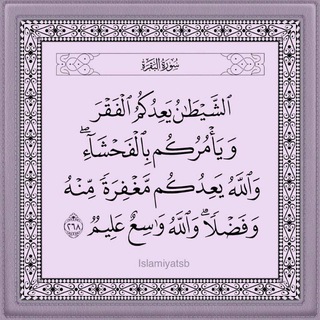 سُورَةُ البَقَرَة
ٱلشَّيْطَٰنُ يَعِدُكُمُ ٱلْفَقْرَ
وَيَأْمُرُكُم بِٱلْفَحْشَآءِۖ
وَٱللَّهُ يَعِدُكُم مَّغْفِرَةً مِّنْهُ
وَفَضْلًاۗ وَٱللَّهُ وَٰسِعٌ عَلِيمٌ ٢٦٨
Islamiyatsb